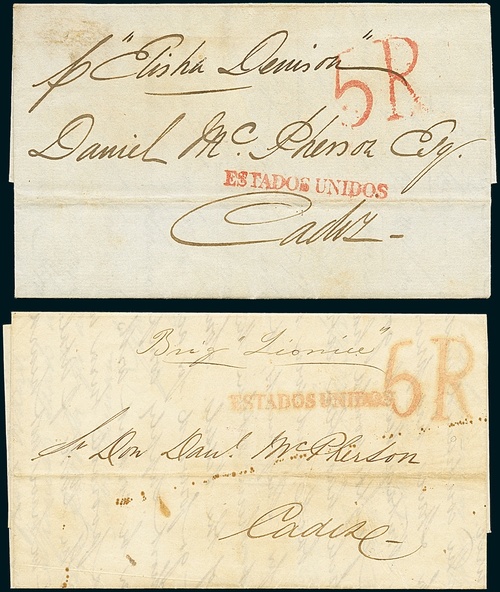 p "Elisha Denison"
5R
Daniel Mc. Pherson Esq.
ESTADOS UNIDOS
Cadiz
Brig "Lionice"
5R
ESTADOS UNIDOS
Sr. Don Danl. McPherson
Cadiz